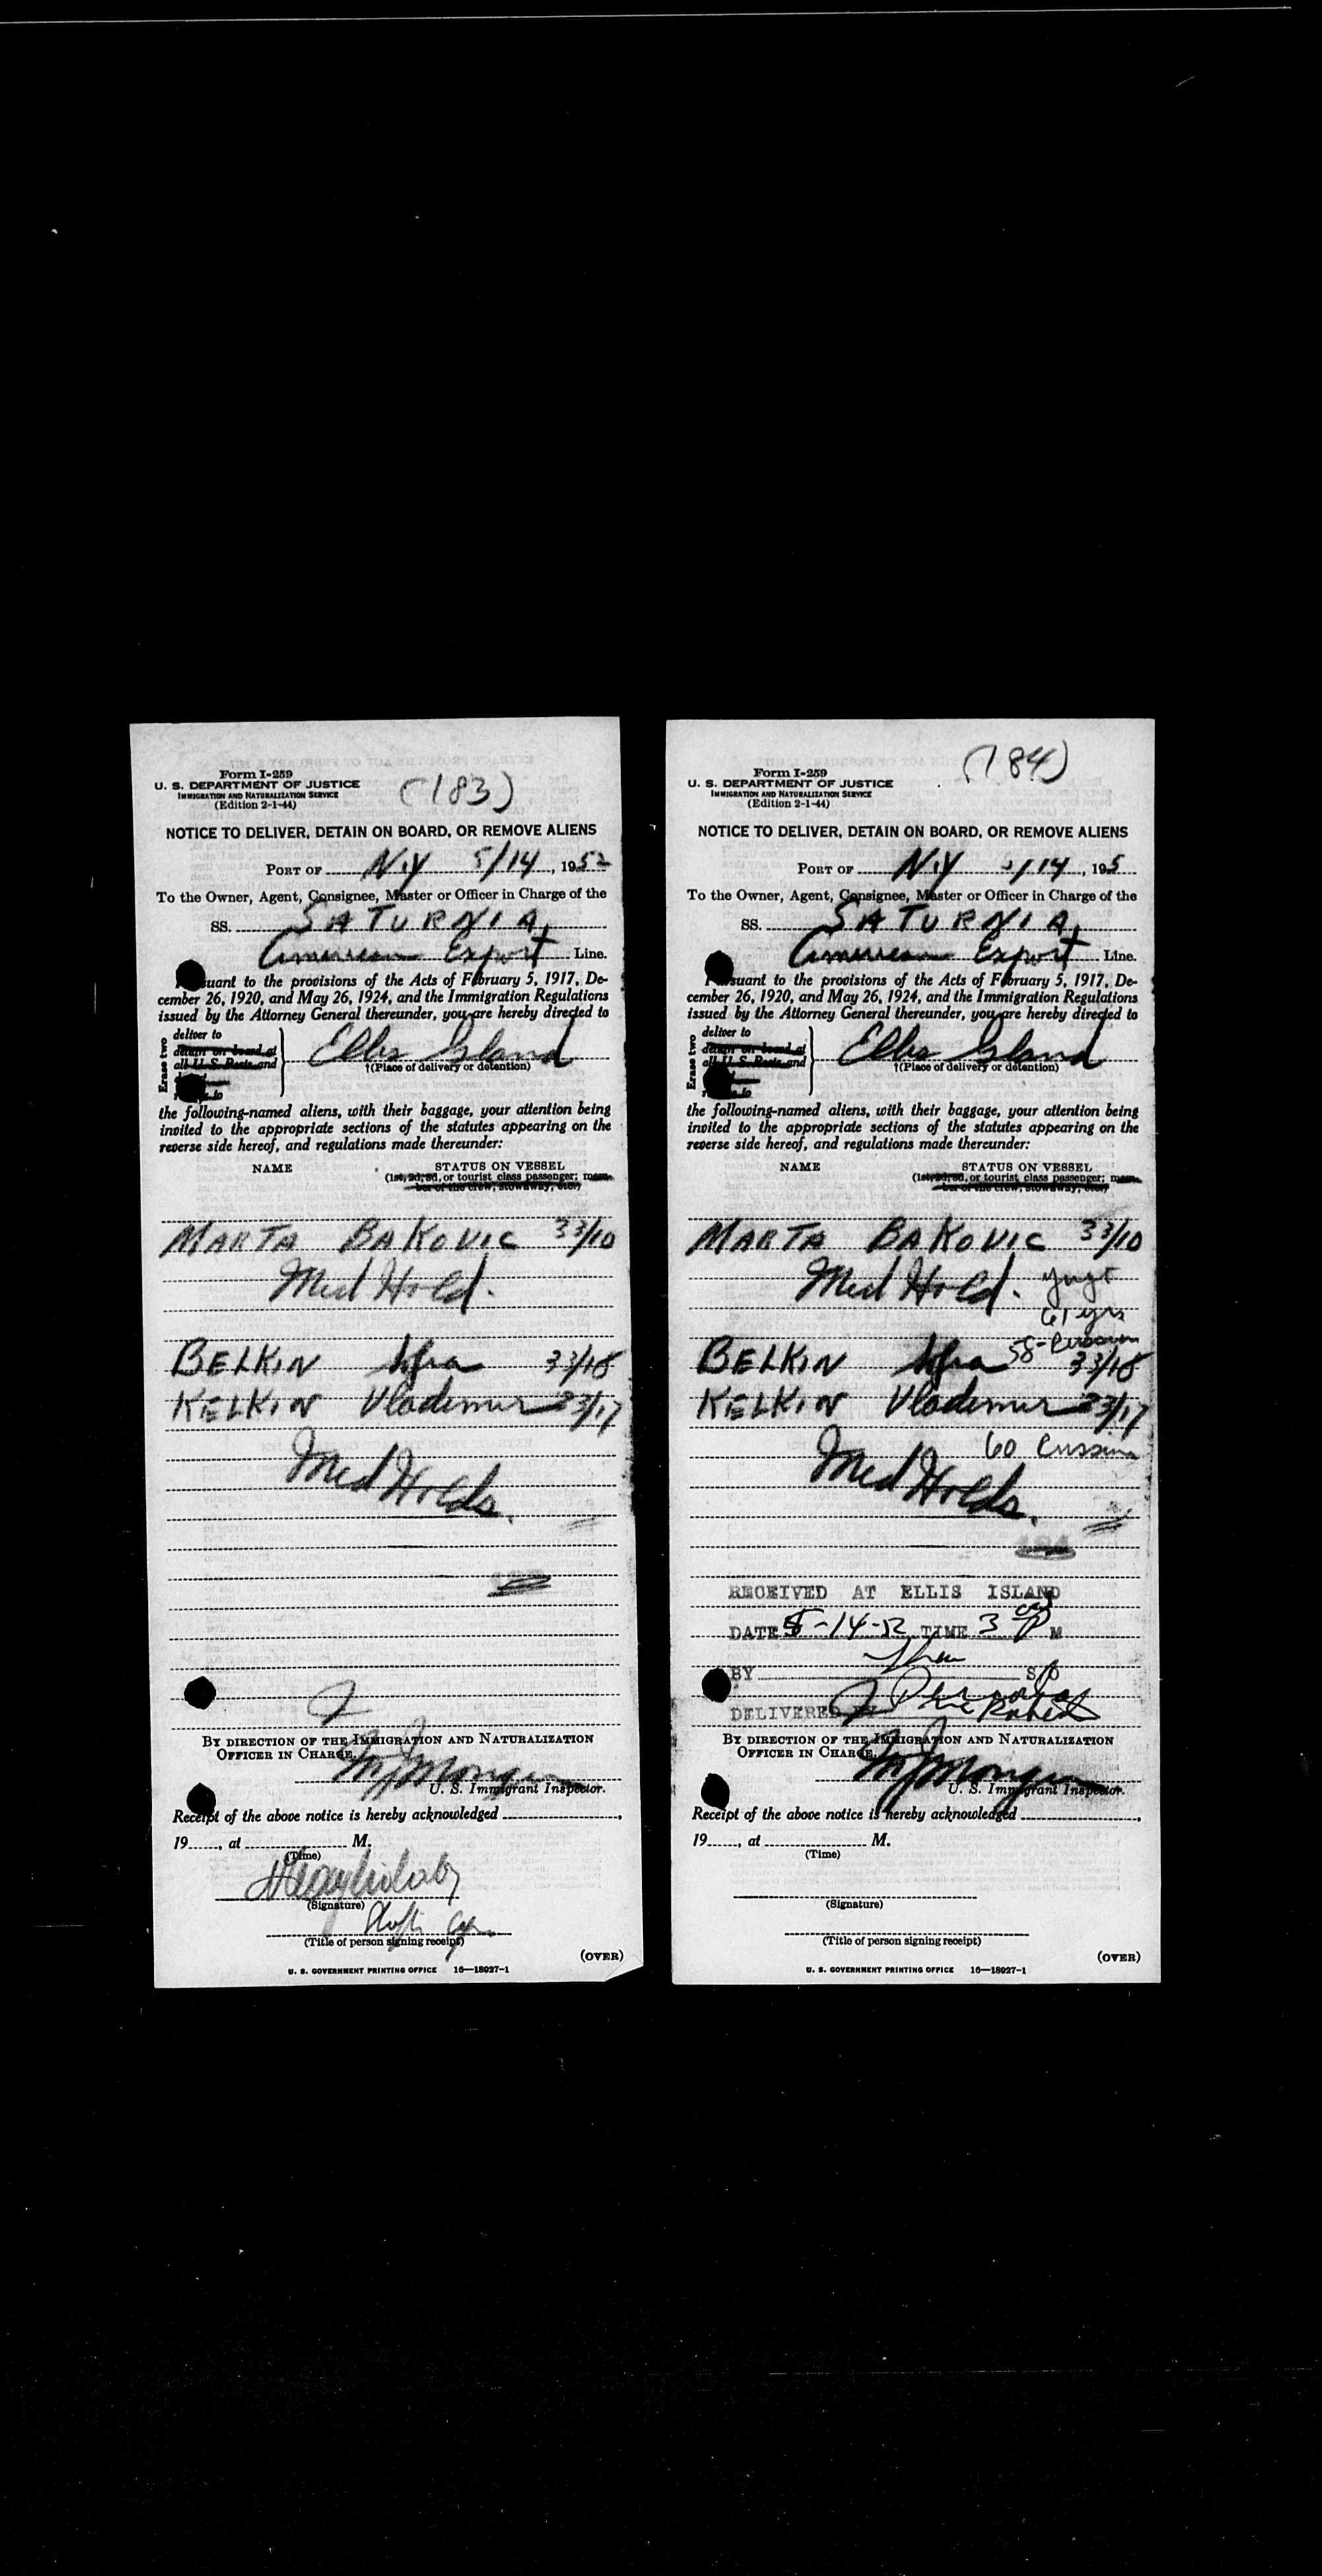 Form I-259
U. S. DEPARTMENT OF JUSTICE
IMMIGRATION AND NATURALIZATION SERVICE
(Edition 2-1-44)
(183)
NOTICE TO DELIVER, DETAIN ON BOARD, OR REMOVE ALIENS
PORT OF N.Y 5/14, 1952
To the Owner, Agent, Consignee, Master or Officer in Charge of the
SS. SATURNIA,
American Export Line.
suant to the provisions of the Acts of February 5, 1917, De-
cember 26, 1920, and May 26, 1924, and the Immigration Regulations
issued by the Attorney General thereunder, you are hereby directed to
Erase two
deliver to
detain on board at
all U. S. Ports and
Ellis Island
†(Place of delivery or detention)
the following-named aliens, with their baggage, your attention being
invited to the appropriate sections of the statutes appearing on the
reverse side hereof, and regulations made thereunder:
NAME STATUS ON VESSEL
(1st, 2d, 3d, or tourist class passenger; mem-
ber of the crew, stowaway, etc.)
MARTA BAKOVIC 33/10
Med Hold.
BELKIN 33/18
KELKIN Vlademir 33/17
Med Holds.
BY DIRECTION OF THE IMMIGRATION AND NATURALIZATION
OFFICER IN CHARGE.
U. S. Immigrant Inspector.
Receipt of the above notice is hereby acknowledged ,
19 , at M.
(Time)
(Signature)
(Title of person signing receipt)
(OVER)
U. S. GOVERNMENT PRINTING OFFICE 16—18927-1
Form I-259
U. S. DEPARTMENT OF JUSTICE
IMMIGRATION AND NATURALIZATION SERVICE
(Edition 2-1-44)
(184)
NOTICE TO DELIVER, DETAIN ON BOARD, OR REMOVE ALIENS
PORT OF N.Y /14, 195
To the Owner, Agent, Consignee, Master or Officer in Charge of the
SS. SATURNIA,
American Export Line.
suant to the provisions of the Acts of February 5, 1917, De-
cember 26, 1920, and May 26, 1924, and the Immigration Regulations
issued by the Attorney General thereunder, you are hereby directed to
Erase two
deliver to
detain on board at
all U. S. Ports and
Ellis Island
†(Place of delivery or detention)
the following-named aliens, with their baggage, your attention being
invited to the appropriate sections of the statutes appearing on the
reverse side hereof, and regulations made thereunder:
NAME STATUS ON VESSEL
(1st, 2d, 3d, or tourist class passenger; mem-
ber of the crew, stowaway, etc.)
MARTA BAKOVIC 33/10
Med Hold.
61 yrs
58-Russian
BELKIN 33/18
KELKIN Vlademir 33/17
60 Russian
Med Holds.
RECEIVED AT ELLIS ISLAND
DATE 5-14-52 TIME 3 P M
BY S/O
DELIVERED BY
BY DIRECTION OF THE IMMIGRATION AND NATURALIZATION
OFFICER IN CHARGE.
U. S. Immigrant Inspector.
Receipt of the above notice is hereby acknowledged ,
19 , at M.
(Time)
(Signature)
(Title of person signing receipt)
(OVER)
U. S. GOVERNMENT PRINTING OFFICE 16—18927-1